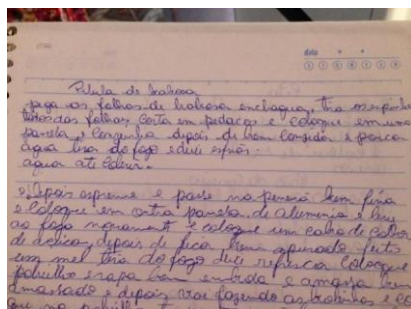 data
Pilula de babosa
pega as folhas de babosa enchagua, tira os espinhos
das folhas, corta em pedaços e coloque em uma
panela e cozinha depois de bem cozido e pouca
agua tira do fogo e deixe esfriar.
agua até cobrir.
Depois espreme e passe na peneira bem fina
e coloque em outra panela de aluminio e leve
ao fogo novamente e coloque um cabo de colher
depois de ficar bem apurado feito
um mel tira do fogo deixe refrescar coloque
polvilho e rapa bem e amassa bem
amassado e depois vai fazendo as bolinhas e